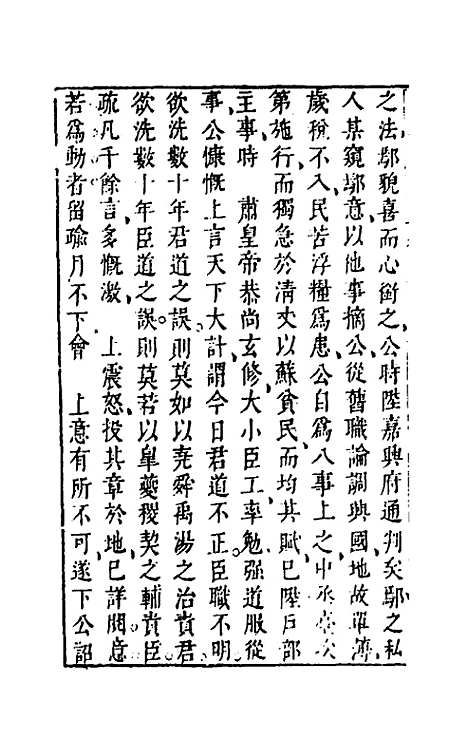 之法鄢貌喜而心銜之公時陞嘉興府通判矣鄢之私
人某窺鄢意以他事摘公從舊職論調興國地故單薄
歲稅不入民苦浮糧為患公自為八事上之中丞臺次
第施行而獨急於清丈以蘇貧民而均其賦已陞戶部
主事時　肅皇帝恭尚玄修大小臣工率勉强道服從
事公慷慨上言天下大計謂今日君道不正臣職不明
欲洗數十年君道之誤則莫如以堯舜禹湯之治責君
欲洗數十年臣道之誤則莫若以臯夔稷契之輔責臣
疏凡千餘言多慨激　上震怒投其章於地已詳閱意
若為動者留踰月不下會　上意有所不可遂下公詔